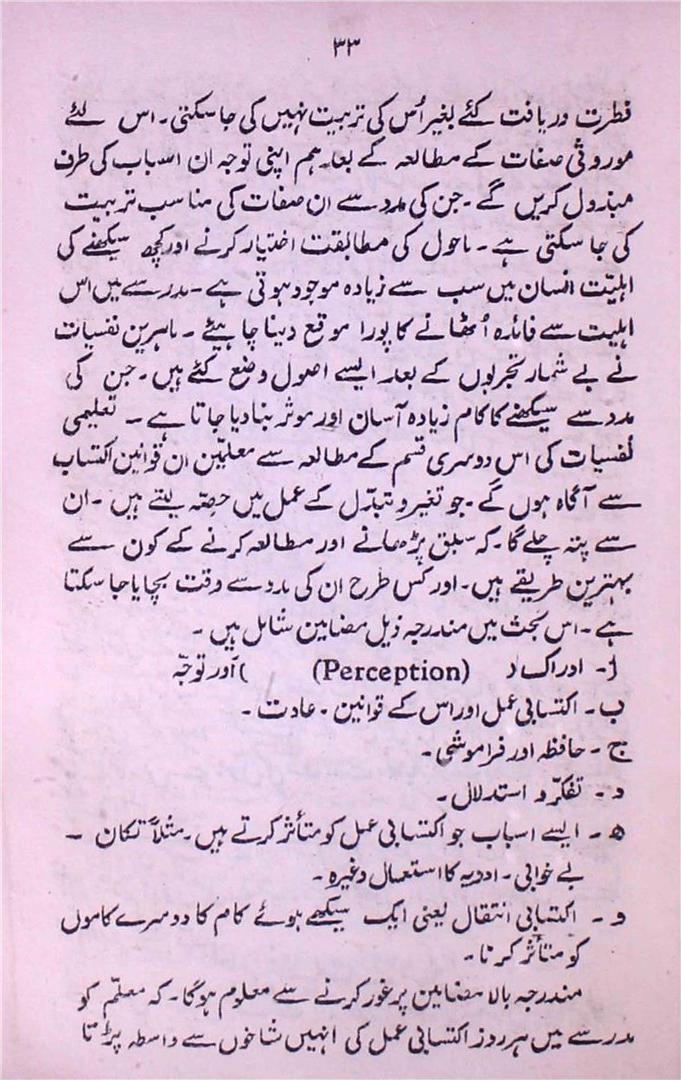 ۳۳
فطرت دریافت کئے بغیر اُس کی تربیت نہیں کی جا سکتی۔ اس لئے
موروثی صفات کے مطالعہ کے بعد ہم اپنی توجہ ان اسباب کی طرف
مبذول کریں گے۔ جن کی مدد سے ان صفات کی مناسب تربیت
کی جا سکتی ہے۔ ماحول کی مطابقت اختیار کرنے اور کچھ سیکھنے کی
اہلیّت انسان میں سب سے زیادہ موجود ہوتی ہے۔ مدرسے میں اس
اہلیت سے فائدہ اُٹھانے کا پورا موقع دینا چاہیئے۔ ماہرین نفسیات
نے بے شمار تجربوں کے بعد ایسے اصول وضع کئے ہیں۔ جن کی
مدد سے سیکھنے کا کام زیادہ آسان اور موثر بنا دیا جاتا ہے۔ تعلیمی
نفسیات کی اس دوسری قسم کے مطالعہ سے معلمّین ان قوانین اکتساب
سے آگاہ ہوں گے۔ جو تغیر و تبدّل کے عمل میں حصّہ لیتے ہیں۔ ان
سے پتہ چلے گا۔ کہ سبق پڑھانے اور مطالعہ کرنے کے کون سے
بہترین طریقے ہیں۔ اور کس طرح ان کی مدد سے وقت بچایا جا سکتا
ہے۔ اس بحث میں مندرجہ ذیل مضامین شامل ہیں۔
ا۔ ادراک ( (Perception) ) اور توجّہ
ب۔ اکتسابی عمل اور اس کے قوانین۔ عادت۔
ج۔ حافظہ اور فراموشی۔
د۔ تفکّر و استدلال۔
ھ۔ ایسے اسباب جو اکتسابی عمل کو متأثر کرتے ہیں۔ مثلاً تکان ۔
بے خوابی۔ ادویہ کا استعمال وغیرہ۔
و۔ اکتسابی انتقال یعنی ایک سیکھے ہوئے کام کا دوسرے کاموں
کو متأثر کرنا۔
مندرجہ بالا مضامین پر غور کرنے سے معلوم ہوگا۔ کہ معلّم کو
مدرسے میں ہر روز اکتسابی عمل کی انہیں شاخوں سے واسطہ پڑتا